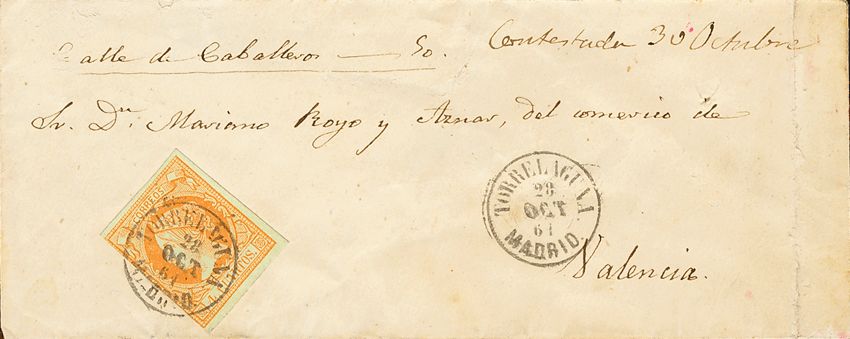 Calle de Caballeros — 50.
Contestada 30 Octubre
Sr. Dn. Mariano Royo y Aznar, del comercio de
Valencia.
TORRELAGUNA
28
OCT
61
MADRID
CORREOS
4 CUARTOS.
TORRELAGUNA
28
OCT
61
MADRID